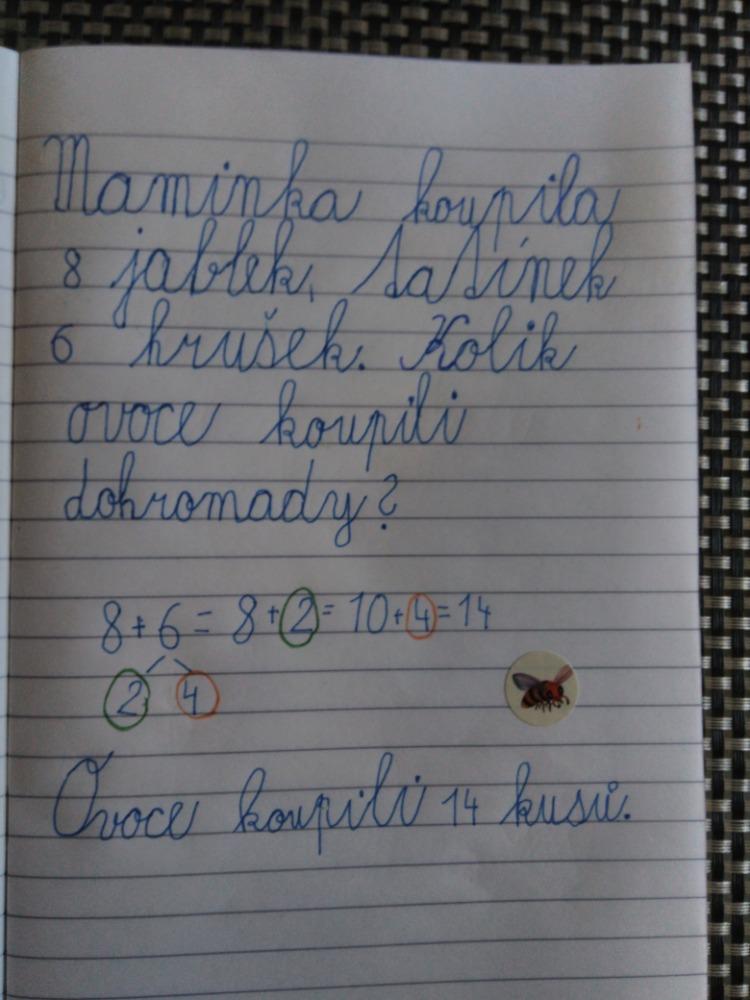 Maminka koupila
8 jablek, tatínek
6 hrušek. Kolik
ovoce koupili
dohromady?
8+6= 8+2= 10+4=14
2 4
Ovoce koupili 14 kusů.